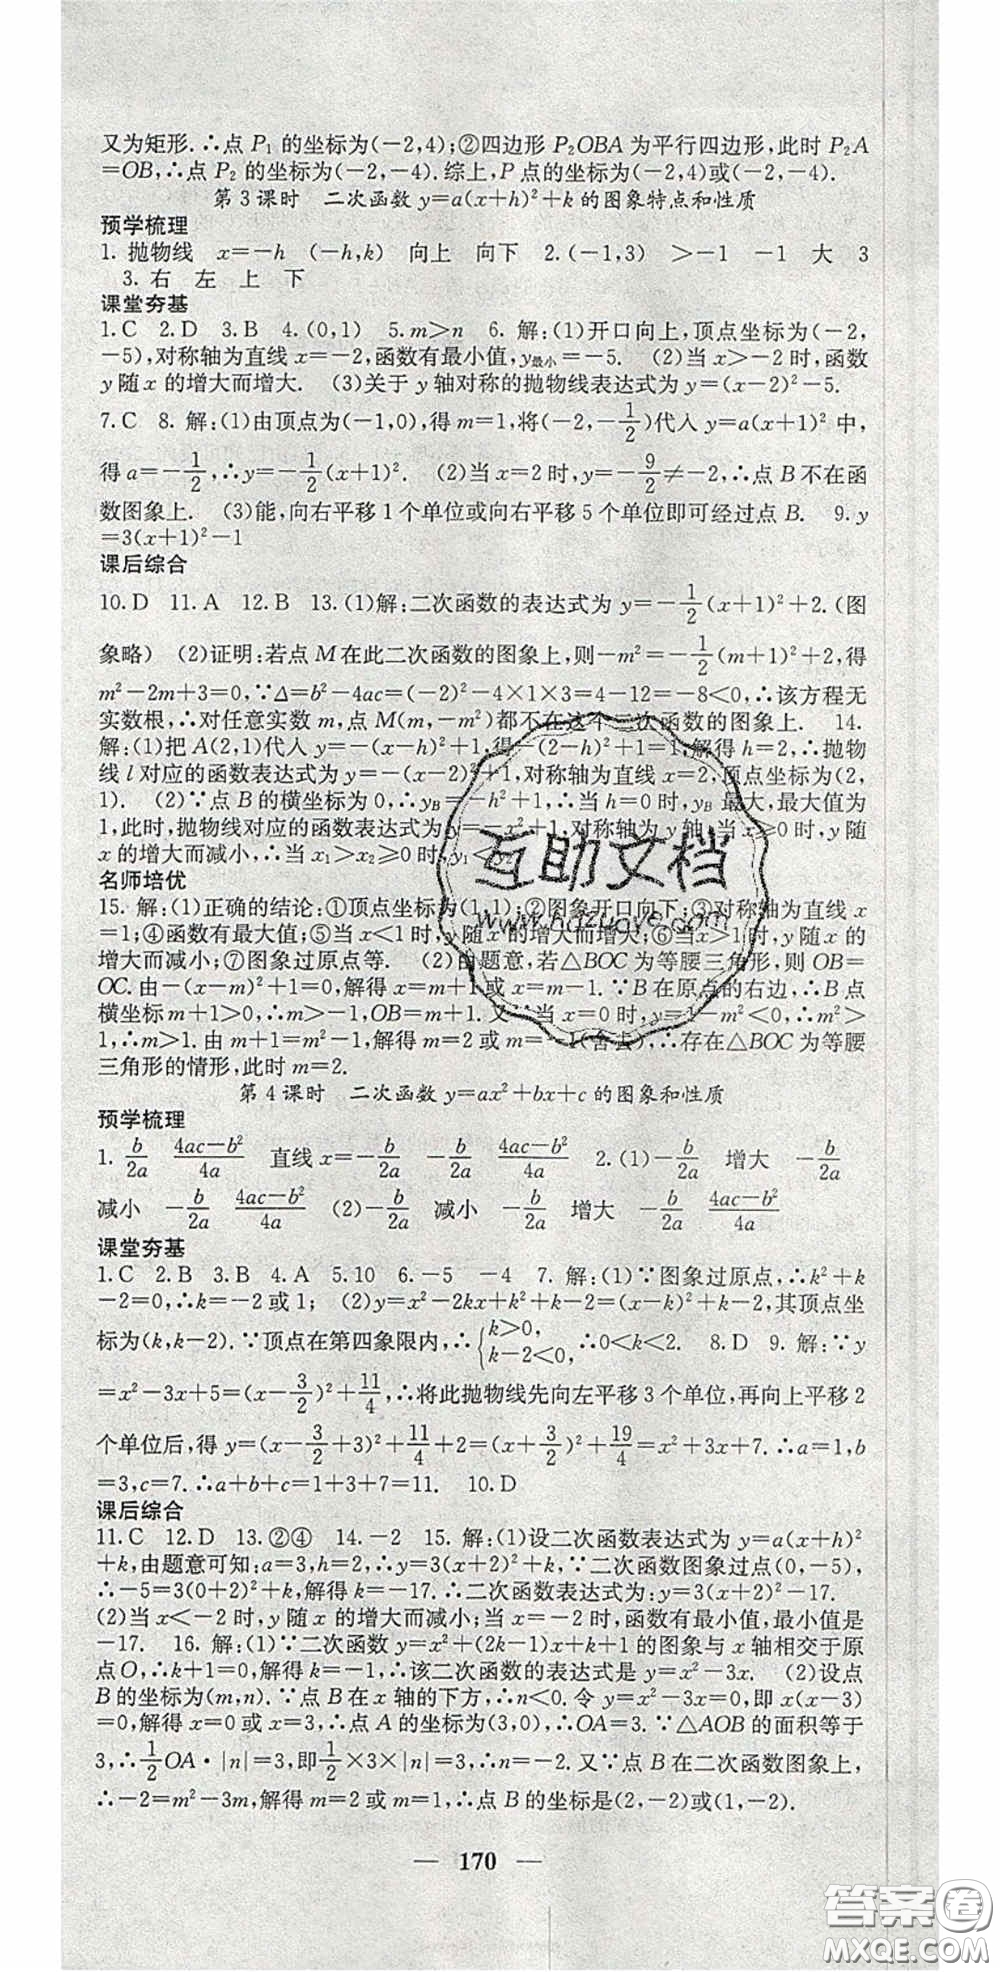 又为矩形.∴点 P₁ 的坐标为(-2,4);②四边形 P₂OBA 为平行四边形,此时 P₂A
=OB,∴点 P₂ 的坐标为(-2,-4).综上,P 点的坐标为(-2,4)或(-2,-4).
第 3 课时 二次函数 y=a(x+h)²+k 的图象特点和性质
预学梳理
1. 抛物线 x=-h (-h,k) 向上 向下 2.(-1,3) >-1 -1 大 3
3. 右 左 上 下
课堂夯基
1.C 2.D 3.B 4.(0,1) 5.m>n 6. 解:(1)开口向上,顶点坐标为(-2,
-5),对称轴为直线 x=-2,函数有最小值,y最小=-5. (2)当 x>-2 时,函数
y 随 x 的增大而增大. (3)关于 y 轴对称的抛物线表达式为 y=(x-2)²-5.
7.C 8. 解:(1)由顶点为(-1,0),得 m=1,将(-2,-1/2)代入 y=a(x+1)² 中,
得 a=-1/2,∴y=-1/2(x+1)². (2)当 x=2 时,y=-9/2≠-2,∴点 B 不在函
数图象上. (3)能,向右平移 1 个单位或向右平移 5 个单位即可经过点 B. 9.y
=3(x+1)²-1
课后综合
10.D 11.A 12.B 13.(1)解:二次函数的表达式为 y=-1/2(x+1)²+2.(图
象略) (2)证明:若点 M 在此二次函数的图象上,则-m²=-1/2(m+1)²+2,得
m²-2m+3=0,∵Δ=b²-4ac=(-2)²-4×1×3=4-12=-8<0,∴该方程无
实数根,∴对任意实数 m,点 M(m,-m²)都不在这个二次函数的图象上. 14.
解:(1)把 A(2,1)代入 y=-(x-h)²+1,得-(2-h)²+1=1,解得 h=2,∴抛物
线 l 对应的函数表达式为 y=-(x-2)²+1,对称轴为直线 x=2,顶点坐标为(2,
1). (2)∵点 B 的横坐标为 0,∴yB=-h²+1,∴当 h=0 时,yB 最大,最大值为
1,此时,抛物线对应的函数表达式为 y=-x²+1,对称轴为 y 轴,当 x≥0 时,y 随
x 的增大而减小,∴当 x₁>x₂≥0 时,y₁<y₂.
名师培优
15. 解:(1)正确的结论:①顶点坐标为(1,1);②图象开口向下;③对称轴为直线 x
=1;④函数有最大值;⑤当 x<1 时,y 随 x 的增大而增大;⑥当 x>1 时,y 随 x 的增
大而减小;⑦图象过原点等. (2)由题意,若△BOC 为等腰三角形,则 OB=
OC.由-(x-m)²+1=0,解得 x=m+1 或 x=m-1.∵B 在原点的右边,∴B 点
横坐标 m+1>0,∴m>-1,OB=m+1.又∵当 x=0 时,y=1-m²<0,∴m²>
1,∴m>1.由 m+1=m²-1,解得 m=2 或 m=-1(舍去),∴存在△BOC 为等腰
三角形的情形,此时 m=2.
第 4 课时 二次函数 y=ax²+bx+c 的图象和性质
预学梳理
1. -b/2a (4ac-b²)/4a 直线 x=-b/2a -b/2a (4ac-b²)/4a 2.(1)-b/2a 增大 -b/2a
减小 -b/2a (4ac-b²)/4a (2)-b/2a 减小 -b/2a 增大 -b/2a (4ac-b²)/4a
课堂夯基
1.C 2.B 3.B 4.A 5.10 6.-5 -4 7. 解:(1)∵图象过原点,∴k²+k
-2=0,∴k=-2 或 1; (2)y=x²-2kx+k²+k-2=(x-k)²+k-2,其顶点坐
标为(k,k-2).∵顶点在第四象限内,∴{k>0, k-2<0, ∴0<k<2. 8.D 9. 解:∵y
=x²-3x+5=(x-3/2)²+11/4,∴将此抛物线先向左平移 3 个单位,再向上平移 2
个单位后,得 y=(x-3/2+3)²+11/4+2=(x+3/2)²+19/4=x²+3x+7.∴a=1,b
=3,c=7.∴a+b+c=1+3+7=11. 10.D
课后综合
11.C 12.D 13.②④ 14.-2 15. 解:(1)设二次函数表达式为 y=a(x+h)²
+k,由题意可知:a=3,h=2,∴y=3(x+2)²+k,∵二次函数图象过点(0,-5),
∴-5=3(0+2)²+k,解得 k=-17.∴二次函数表达式为:y=3(x+2)²-17.
(2)当 x<-2 时,y 随 x 的增大而减小;当 x=-2 时,函数有最小值,最小值是
-17. 16. 解:(1)∵二次函数 y=x²+(2k-1)x+k+1 的图象与 x 轴相交于原
点 O,∴k+1=0,解得 k=-1,∴该二次函数的表达式是 y=x²-3x. (2)设点
B 的坐标为(m,n).∵点 B 在 x 轴的下方,∴n<0.令 y=x²-3x=0,即 x(x-3)
=0,解得 x=0 或 x=3,∴点 A 的坐标为(3,0),∴OA=3.∵△AOB 的面积等于
3,∴1/2 OA·|n|=3,即1/2×3×|n|=3,∴n=-2.又∵点 B 在二次函数图象上,
∴-2=m²-3m,解得 m=2 或 m=1,∴点 B 的坐标是(2,-2)或(1,-2).
— 170 —
互助文档
答案圈
MXQE.COM